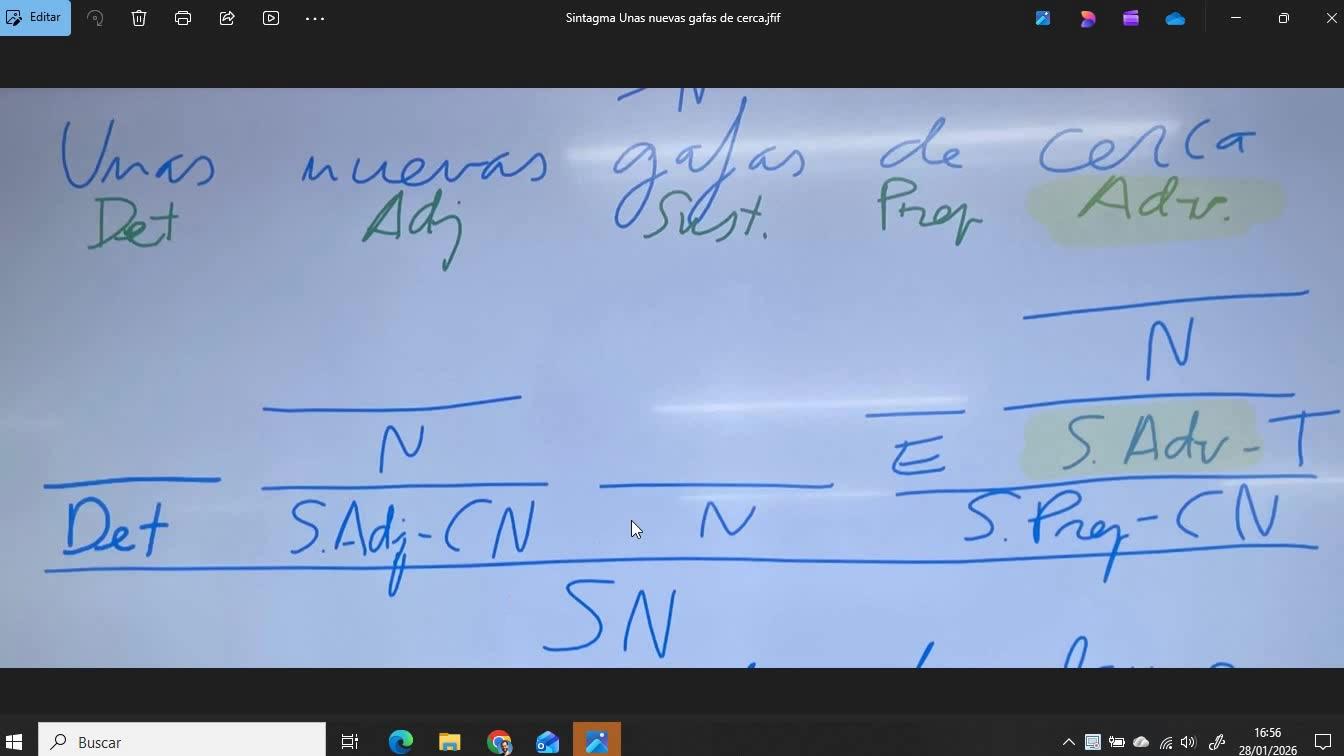 Editar
Sintagma Unas nuevas gafas de cerca.jfif
Unas nuevas gafas de cerca
Det Adj Sust. Prep Adv.
N
N E S. Adv-T
Det S.Adj-CN N S.Prep-CN
SN
Buscar
16:56
28/01/2026